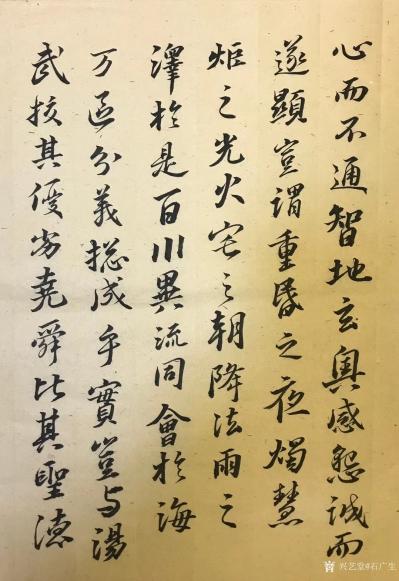 心而不通智地玄奥感懇誠而
遂顯豈謂重昏之夜燭慧
炬之光火宅之朝降法雨之
澤於是百川異流同會於海
万區分義揔成乎實豈与湯
武挍其優劣堯舜比其聖德
兴艺堂#石广生